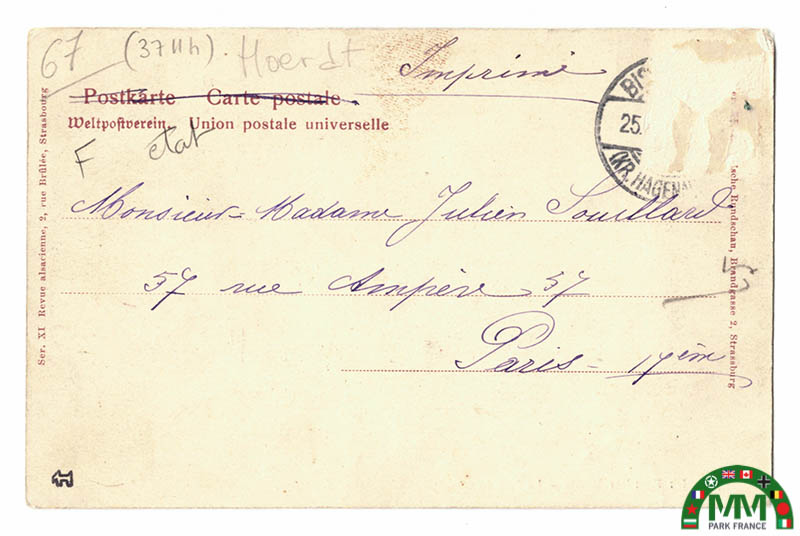 67 (37 II h). Hoerdt
Imprimé
Postkarte Carte postale.
Weltpostverein. Union postale universelle
F etat
BIS
25.
(KR. HAGENA
Monsieur = Madame Julien Souillard
57 rue Ampère 57
Paris - 17ème
Ser. XI Revue alsacienne, 2, rue Brûlée, Strasbourg
sche Rundschau, Brandgasse 2, Strassburg
MM
PARK FRANCE